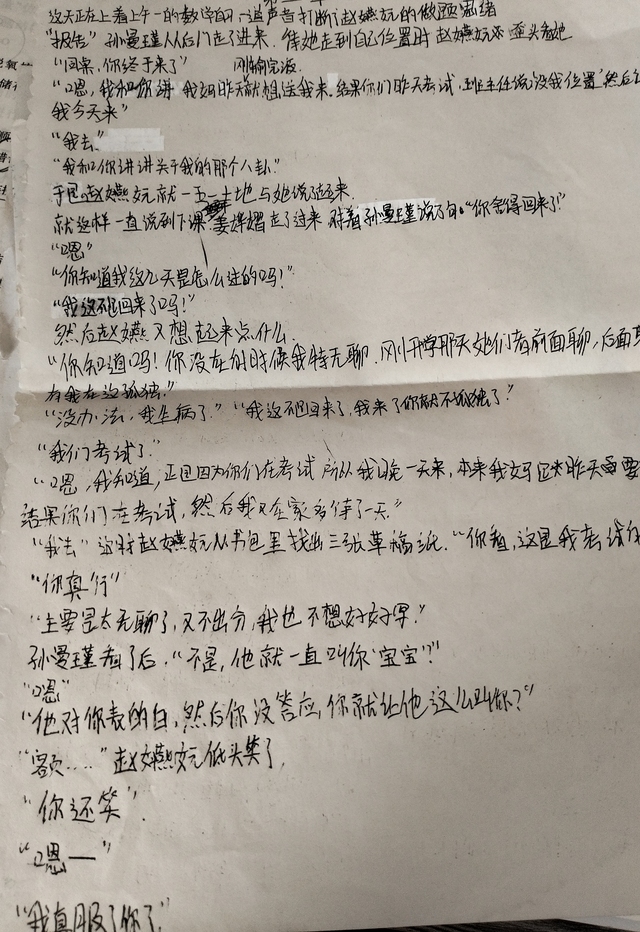 这天正在上着上午一的数学自习一道声音打断了赵嬿妧的做题思绪
"报告" 孙曼瑾从后门走了进来. 等她走到自己位置时 赵嬿妧 歪头看她
"同桌,你终于来了" 刚输完液.
"嗯,我和你讲 我妈昨天就想送我来.结果你们昨天考试,班主任说没我位置 然后
我今天来"
"我去"
"我和你讲讲关于我的那个八卦."
于是赵嬿妧就一五一十地与她说了起来.
就这样一直说到下课. 走了过来 对着孙曼瑾说了句."你舍得回来了!"
"嗯"
"你知道我这几天是怎么过的吗!"
"我这不回来了吗!"
然后赵嬿又想起来点什么.
"你知道吗!你没在的时候我特无聊.刚开学那天她们看前面聊,后面
有我在这孤独."
"没办法,我生病了." "我这不回来了,我来了你就不孤独了."
"我们考试了."
"嗯,我知道,正因为你们在考试 所以我晚一天来,本来我妈 昨天 要
结果你们在考试,然后我又在家多待了一天."
"我去" 这时赵嬿妧从书包里找出三张草稿纸."你看,这是我
"你真行"
"主要是太无聊了,又不出分,我也不想好好学."
孙曼瑾看了后."不是,他就一直叫你'宝宝'?"
"嗯"
"他对你表的白,然后你没答应,你就让他这么叫你?"
"额....."赵嬿妧低头笑了.
"你还笑".
"嗯—"
"我真服了你了"